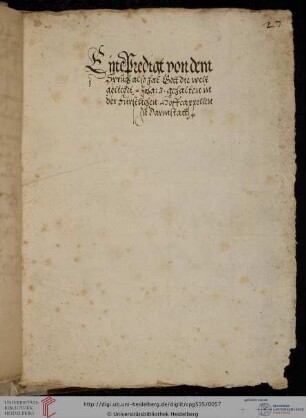 27
Eine Predigt von dem
Spruch also hat Gott die welt
geliebt Joha: 3. gehalten in
der Fürstlichen Hoffcappellen
zu Darmstatt
UNIVERSITÄTS-
BIBLIOTHEK
HEIDELBERG
http://digi.ub.uni-heidelberg.de/diglit/cpg535/0057
© Universitätsbibliothek Heidelberg